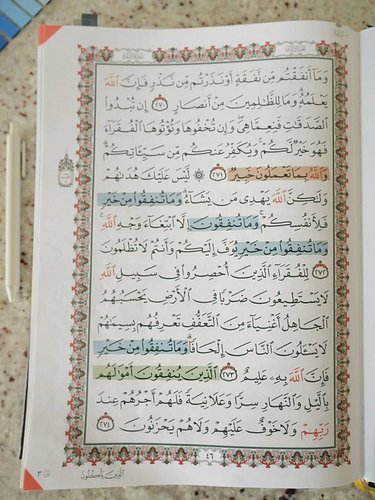 وَمَآ أَنفَقْتُم مِّن نَّفَقَةٍ أَوْ نَذَرْتُم مِّن نَّذْرٍ فَإِنَّ ٱللَّهَ
يَعْلَمُهُۥ وَمَا لِلظَّٰلِمِينَ مِنْ أَنصَارٍ ٢٧٠ إِن تُبْدُوا۟
ٱلصَّدَقَٰتِ فَنِعِمَّا هِىَ وَإِن تُخْفُوهَا وَتُؤْتُوهَا ٱلْفُقَرَآءَ
فَهُوَ خَيْرٌ لَّكُمْ وَيُكَفِّرُ عَنكُم مِّن سَيِّـَٔاتِكُمْ
وَٱللَّهُ بِمَا تَعْمَلُونَ خَبِيرٌ ٢٧١ لَّيْسَ عَلَيْكَ هُدَىٰهُمْ
وَلَٰكِنَّ ٱللَّهَ يَهْدِى مَن يَشَآءُ وَمَا تُنفِقُوا۟ مِنْ خَيْرٍ
فَلِأَنفُسِكُمْ وَمَا تُنفِقُونَ إِلَّا ٱبْتِغَآءَ وَجْهِ ٱللَّهِ
وَمَا تُنفِقُوا۟ مِنْ خَيْرٍ يُوَفَّ إِلَيْكُمْ وَأَنتُمْ لَا تُظْلَمُونَ
٢٧٢ لِلْفُقَرَآءِ ٱلَّذِينَ أُحْصِرُوا۟ فِى سَبِيلِ ٱللَّهِ
لَا يَسْتَطِيعُونَ ضَرْبًا فِى ٱلْأَرْضِ يَحْسَبُهُمُ
ٱلْجَاهِلُ أَغْنِيَآءَ مِنَ ٱلتَّعَفُّفِ تَعْرِفُهُم بِسِيمَٰهُمْ
لَا يَسْـَٔلُونَ ٱلنَّاسَ إِلْحَافًا وَمَا تُنفِقُوا۟ مِنْ خَيْرٍ
فَإِنَّ ٱللَّهَ بِهِۦ عَلِيمٌ ٢٧٣ ٱلَّذِينَ يُنفِقُونَ أَمْوَٰلَهُم
بِٱلَّيْلِ وَٱلنَّهَارِ سِرًّا وَعَلَانِيَةً فَلَهُمْ أَجْرُهُمْ عِندَ
رَبِّهِمْ وَلَا خَوْفٌ عَلَيْهِمْ وَلَا هُمْ يَحْزَنُونَ ٢٧٤
٤٦